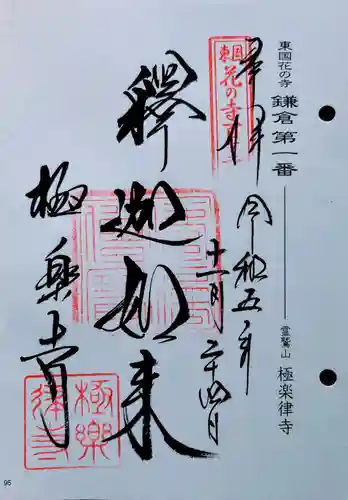 東国花の寺 鎌倉第一番
霊鷲山 極楽律寺
奉拝
東国
花の寺百ヶ寺
令和五年
十一月二十四日
釋迦如来
極楽寺
極樂
律寺
95